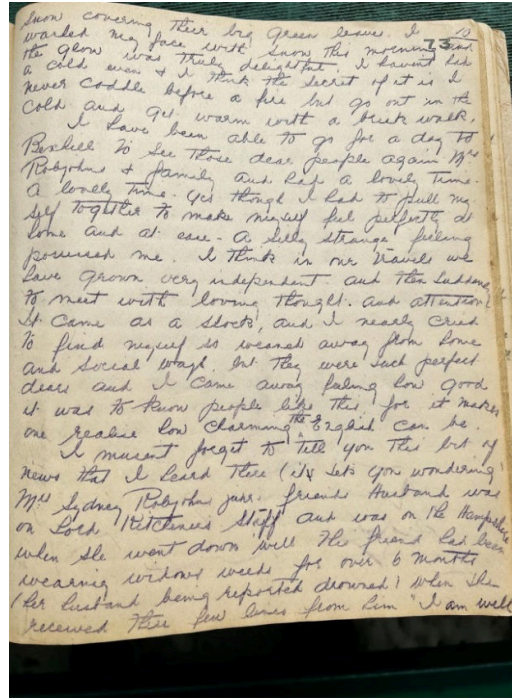 snow covering their big green leaves. I 10
washed my face with snow this morning and 73
the glow was truly delightful. I havent had
a cold even & I think the secret of it is I
never coddle before a fire but go out in the
cold and get warm with a brisk walk.
I have been able to go for a day to
Bexhill to see those dear people again Mrs
Robjohns & family and had a lovely time
A lovely time. yes though I had to pull my
self together to make myself feel perfectly at
home and at ease - A silly strange feeling
possessed me. I think in our travels we
have grown very independent. and then suddenly
to meet with loving thought. and attention
It came as a shock, and I nearly cried
to find myself so weaned away from home
and social ways. but they were such perfect
dears and I came away feeling how good
it was to know people like this for it makes
one realise how charming the English can be.
I musent forget to tell you this bit of
news that I heard there (its sets you wondering
Mrs Sydney Robjohns junr. friends Husband was
on Lord Kitcheners Staff and was on the Hampshire
when she went down well the friend had been
wearing widows weeds for over 6 months
(her husband being reported drowned) when she
received these few lines from him "I am well